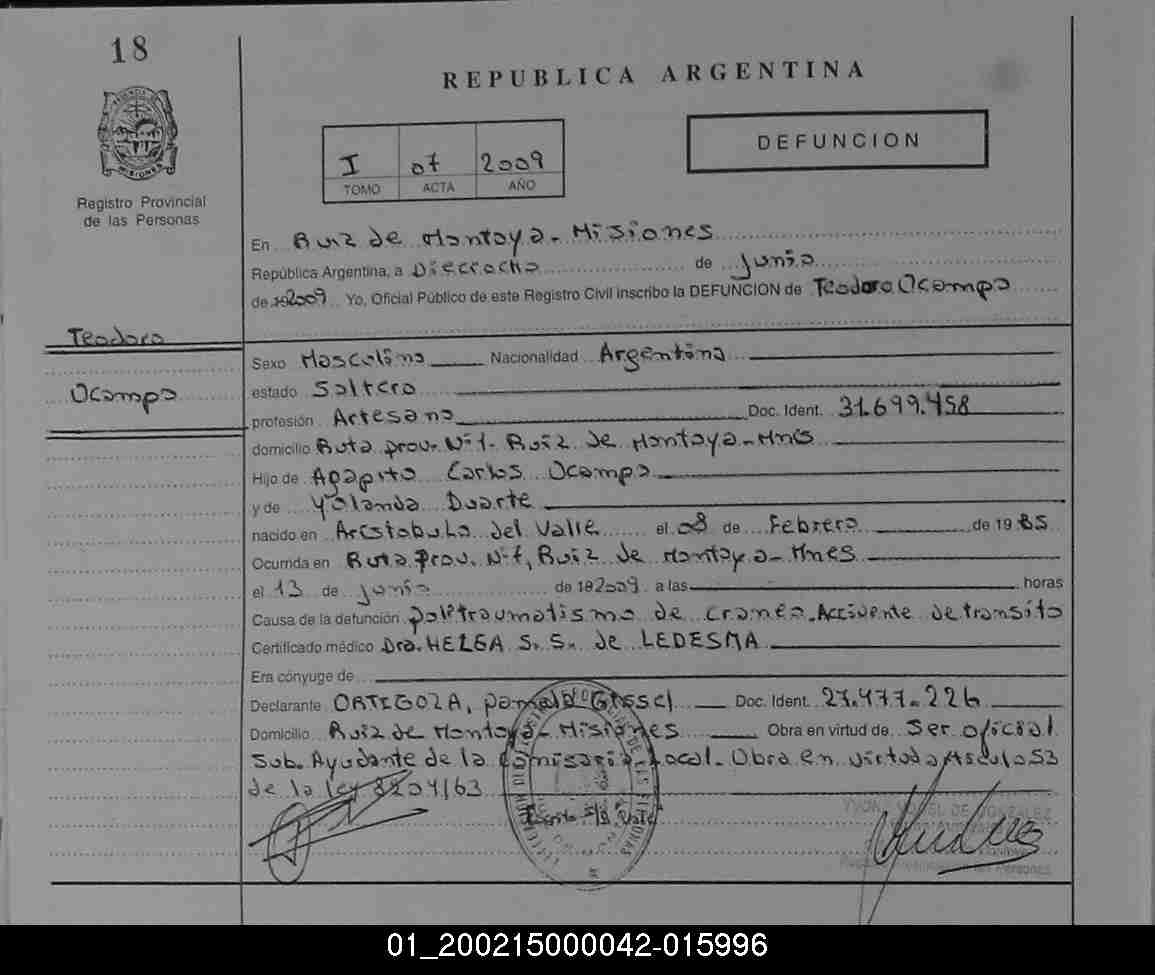 18
REPUBLICA ARGENTINA
I 07 2009
TOMO ACTA AÑO
DEFUNCION
Registro Provincial
de las Personas
En Ruiz de Montoya - Misiones
República Argentina, a Dieciocho de junio
de 2009 Yo, Oficial Público de este Registro Civil inscribo la DEFUNCION de Teodoro Ocampo
Teodoro
Ocampo
Sexo Masculino Nacionalidad Argentina
estado Soltero
profesión Artesano Doc. Ident. 31.699.458
domicilio Ruta prov. Nº1. Ruiz de Montoya - Mnes
Hijo de Agapito Carlos Ocampo
y de Yolanda Duarte
nacido en Aristobulo del Valle el 08 de Febrero de 1985
Ocurrida en Ruta Prov. Nº1, Ruiz de Montoya - Mnes
el 13 de junio de 2009 a las horas
Causa de la defunción politraumatismo de craneo. Accidente de transito
Certificado médico Dra. HELGA S. S. de LEDESMA
Era cónyuge de
Declarante ORTIGOZA, Pamela Gissel Doc. Ident. 27.477.226
Domicilio Ruiz de Montoya - Misiones Obra en virtud de Ser oficial
Sub. Ayudante de la Comisaria Local. Obra en virtud Articulo 53
de la ley 8204/63
01_200215000042-015996